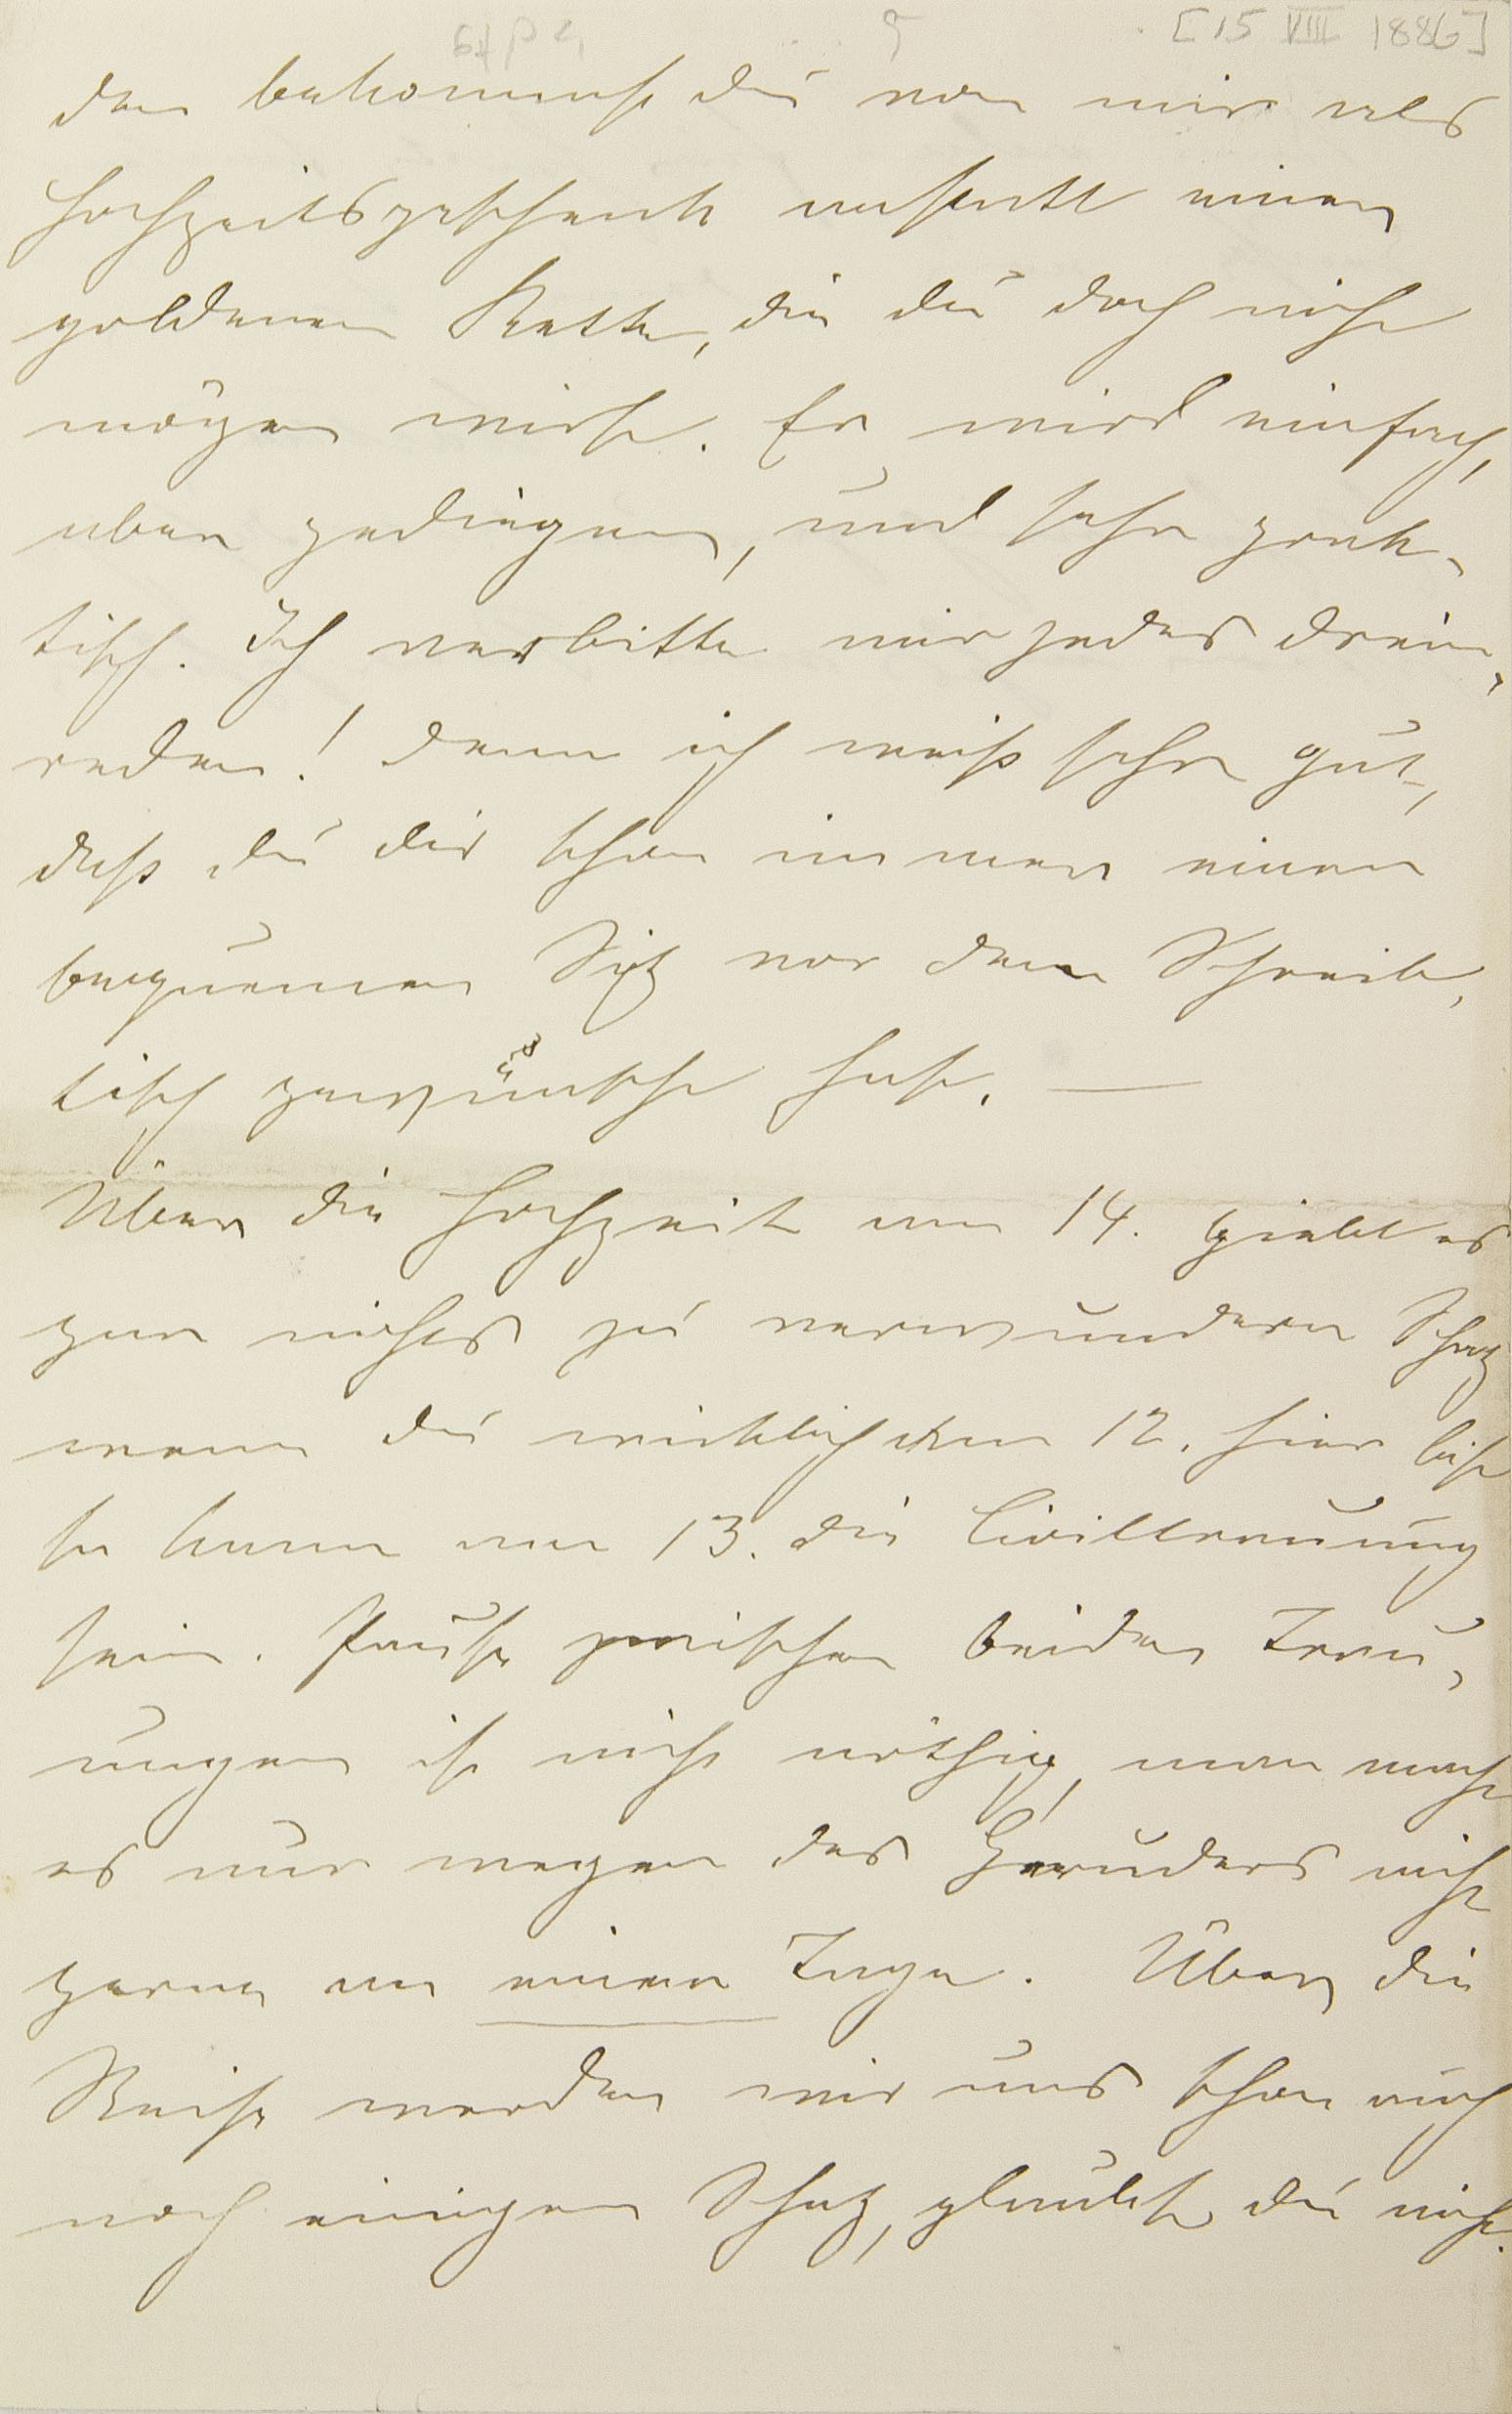 [15 VIII 1886]
den bekommst du von mir als
Hochzeitsgeschenk anstatt einer
goldenen Kette, die du doch nicht
mögen wirst. Er wird einfach,
aber gediegen, und sehr prak-
tisch. Ich verbitte mir jedes Drein-
reden! denn ich weiß sehr gut,
daß du dir schon immer einen
bequemen Sitz vor dem Schreib-
tisch gewünscht hast. —
Über die Hochzeit am 14. giebt es
gar nichts zu verwundern Schatz
wenn du wirklich den 12. hier bist
so kann am 13. die Civiltrauung
sein. Pause zwischen beiden Trau-
ungen ist nicht nöthig, man macht
es nur wegen des nicht
gerne an einem Tage. Über die
Reise werden wir uns schon auch
noch einigen Schatz, glaubst du nicht.